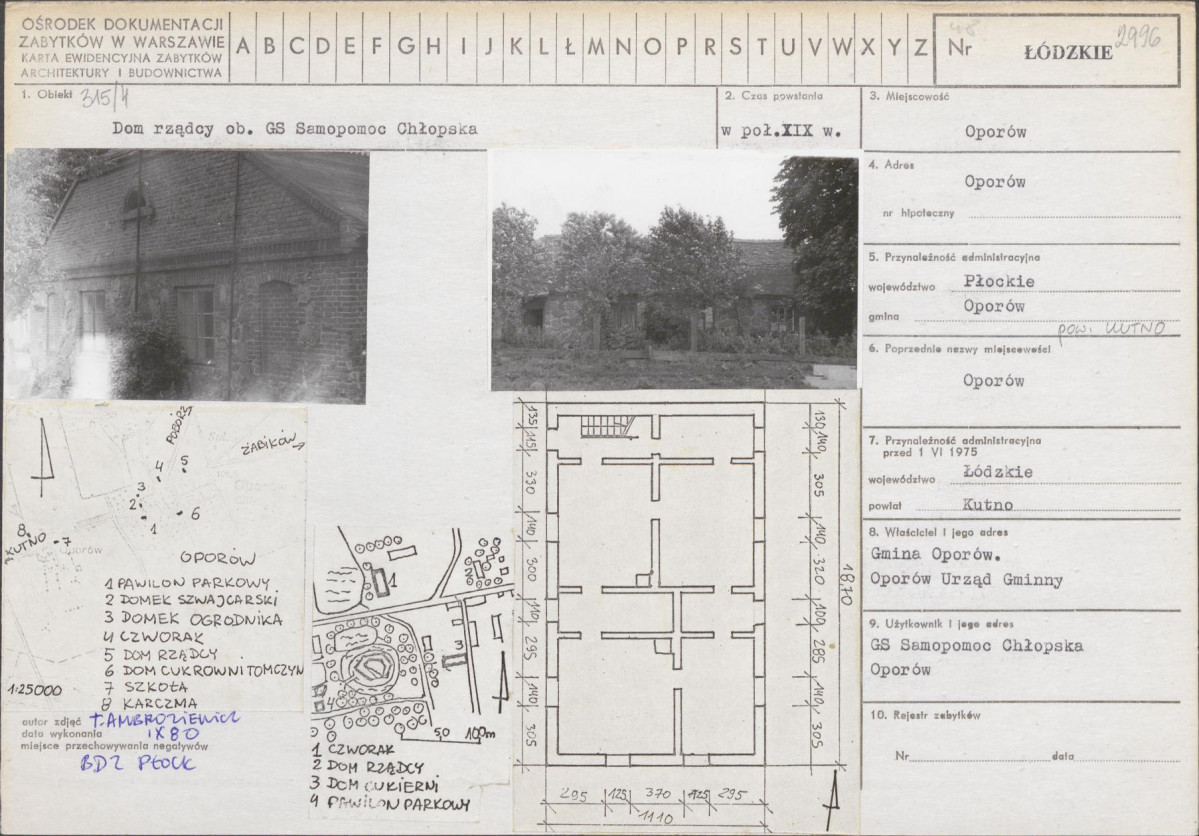 OŚRODEK DOKUMENTACJI
ZABYTKÓW W WARSZAWIE
KARTA EWIDENCYJNA ZABYTKÓW
ARCHITEKTURY I BUDOWNICTWA
A B C D E F G H I J K L Ł M N O P R S T U V W X Y Z
Nr
48
ŁÓDZKIE
2996
1. Obiekt 315/4
Dom rządcy ob. GS Samopomoc Chłopska
2. Czas powstania
w poł.XIX w.
3. Miejscowość
Oporów
4. Adres
Oporów
nr hipoteczny
5. Przynależność administracyjna
województwo Płockie
gmina Oporów
pow. KUTNO
6. Poprzednie nazwy miejscowości
Oporów
7. Przynależność administracyjna
przed 1 VI 1975
województwo Łódzkie
powiat Kutno
8. Właściciel i jego adres
Gmina Oporów.
Oporów Urząd Gminny
9. Użytkownik i jego adres
GS Samopomoc Chłopska
Oporów
10. Rejestr zabytków
Nr data
POBÓRZ
ŻABIKÓW
4
5
3
2
1
6
8
KUTNO
7
OPORÓW
1 PAWILON PARKOWY
2 DOMEK SZWAJCARSKI
3 DOMEK OGRODNIKA
4 CZWORAK
5 DOM RZĄDCY
6 DOM CUKROWNI TOMCZYN
7 SZKOŁA
8 KARCZMA
1:25000
autor zdjęć T. AMBROZIEWICZ
data wykonania IX 80
miejsce przechowywania negatywów
BDZ PŁOCK
1
2
3
4
50 100m
1 CZWORAK
2 DOM RZĄDCY
3 DOM CUKIERNI
4 PAWILON PARKOWY
135
115
330
140
300
110
295
140
305
130
140
305
140
320
100
285
140
305
18,70
295 125 370 125 295
1110